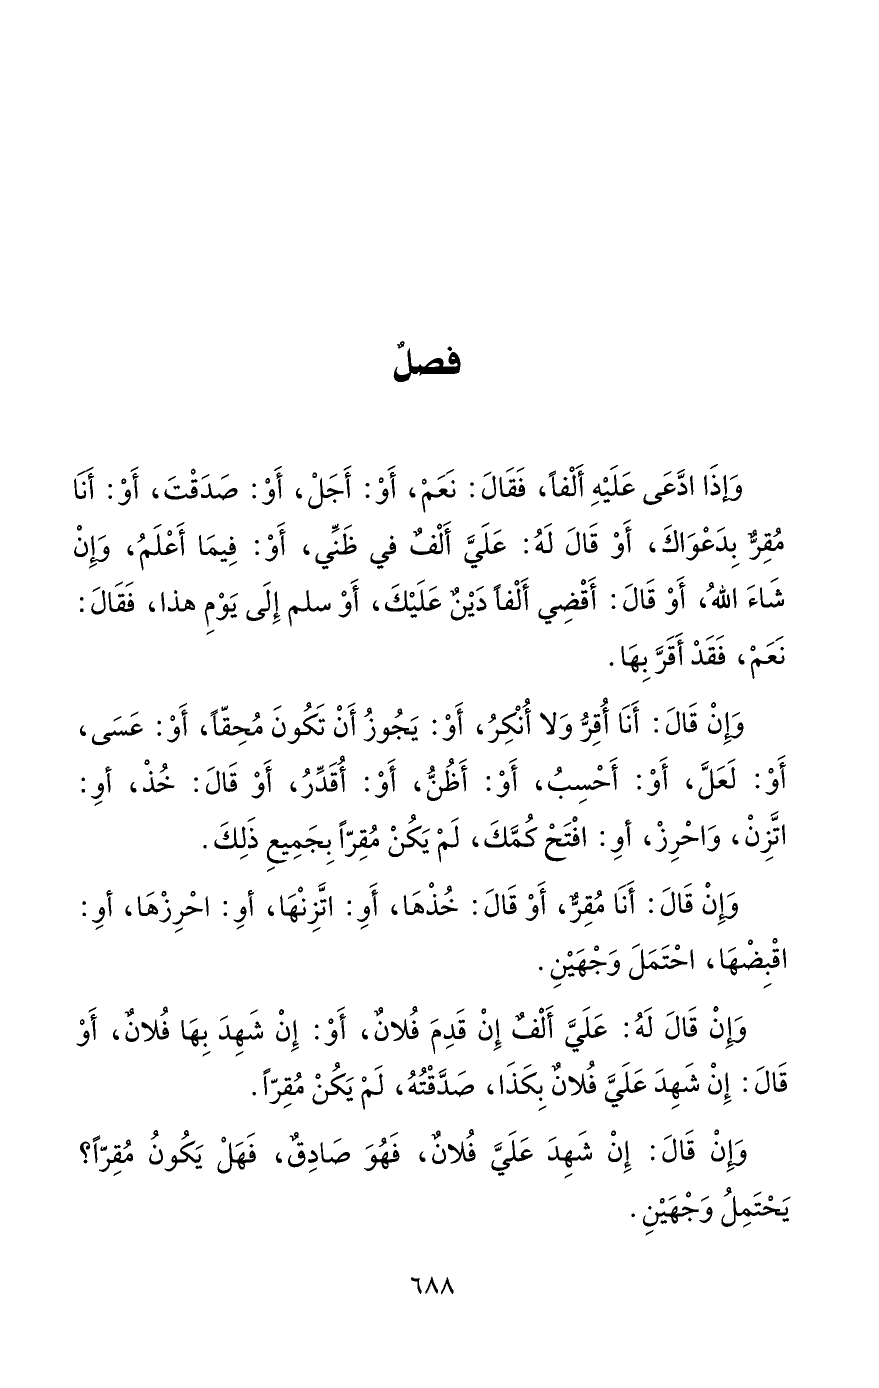 فصلٌ
وَإِذَا ادَّعَى عَلَيْهِ أَلْفاً، فَقَالَ: نَعَمْ، أَوْ: أَجَلْ، أَوْ: صَدَقْتَ، أَوْ: أَنَا
مُقِرٌّ بِدَعْوَاكَ، أَوْ قَالَ لَهُ: عَلَيَّ أَلْفٌ في ظَنِّي، أَوْ: فِيمَا أَعْلَمُ، وَإِنْ
شَاءَ اللهُ، أَوْ قَالَ: أَقْضِي أَلْفاً دَيْنٌ عَلَيْكَ، أَوْ سلم إِلَى يَوْمِ هذا، فَقَالَ:
نَعَمْ، فَقَدْ أَقَرَّ بِهَا.
وَإِنْ قَالَ: أَنَا أُقِرُّ وَلا أُنْكِرُ، أَوْ: يَجُوزُ أَنْ تَكُونَ مُحِقّاً، أَوْ: عَسَى،
أَوْ: لَعَلَّ، أَوْ: أَحْسِبُ، أَوْ: أَظُنُّ، أَوْ: أُقَدِّرُ، أَوْ قَالَ: خُذْ، أوِ:
اتَّزِنْ، وَاحْرِزْ، أوِ: افْتَحْ كُمَّكَ، لَمْ يَكُنْ مُقِرّاً بِجَمِيعِ ذَلِكَ.
وَإِنْ قَالَ: أَنَا مُقِرٌّ، أَوْ قَالَ: خُذْهَا، أَوِ: اتَّزِنْهَا، أوِ: احْرِزْهَا، أوِ:
اقْبِضْهَا، احْتَمَلَ وَجْهَيْنِ.
وَإِنْ قَالَ لَهُ: عَلَيَّ أَلْفٌ إِنْ قَدِمَ فُلانٌ، أَوْ: إِنْ شَهِدَ بِهَا فُلانٌ، أَوْ
قَالَ: إِنْ شَهِدَ عَلَيَّ فُلانٌ بِكَذَا، صَدَّقْتُهُ، لَمْ يَكُنْ مُقِرّاً.
وَإِنْ قَالَ: إِنْ شَهِدَ عَلَيَّ فُلانٌ، فَهُوَ صَادِقٌ، فَهَلْ يَكُونُ مُقِرّاً؟
يَحْتَمِلُ وَجْهَيْنِ.
٦٨٨